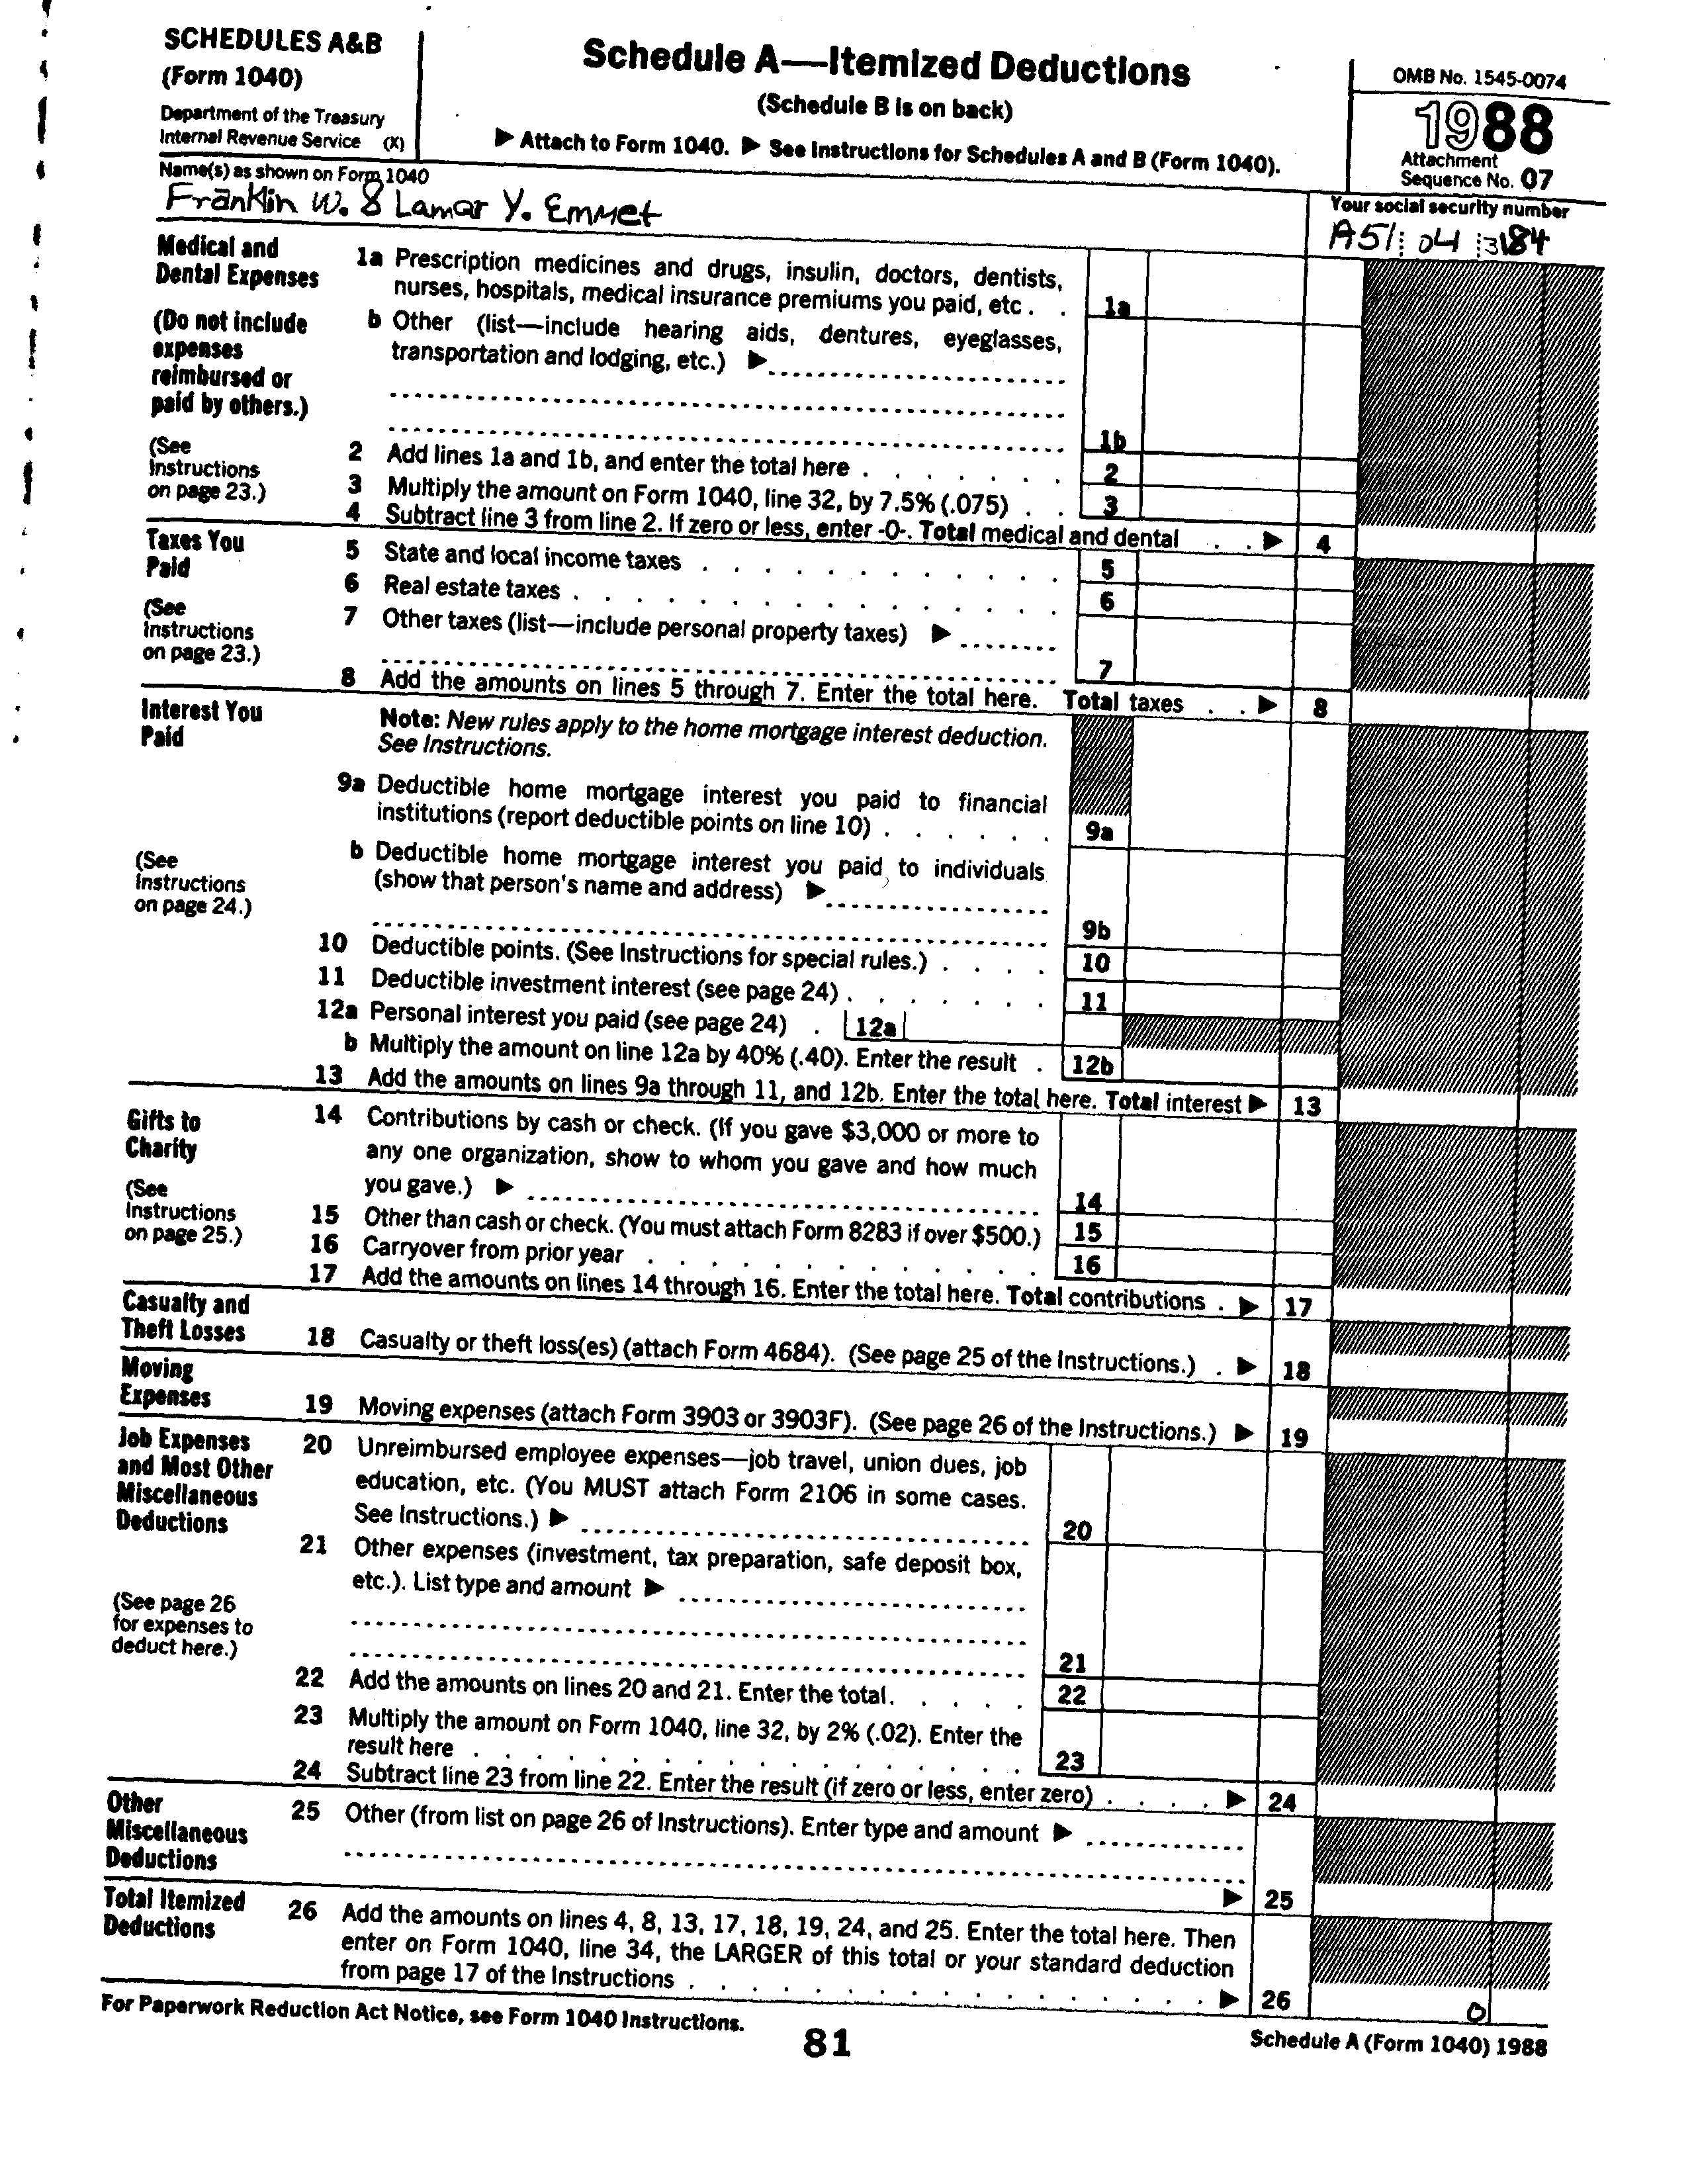 SCHEDULES A&B
(Form 1040)
Department of the Treasury
Internal Revenue Service (X)
Schedule A—Itemized Deductions
(Schedule B is on back)
▶ Attach to Form 1040. ▶ See Instructions for Schedules A and B (Form 1040).
OMB No. 1545-0074
1988
Attachment
Sequence No. 07
Name(s) as shown on Form 1040
Franklin W. & Lamar Y. Emmet
Your social security number
A51 04 3184
Medical and
Dental Expenses
(Do not include
expenses
reimbursed or
paid by others.)
(See
Instructions
on page 23.)
1a Prescription medicines and drugs, insulin, doctors, dentists,
nurses, hospitals, medical insurance premiums you paid, etc . . 1a
b Other (list—include hearing aids, dentures, eyeglasses,
transportation and lodging, etc.) ▶
1b
2 Add lines 1a and 1b, and enter the total here . . . . . . . 2
3 Multiply the amount on Form 1040, line 32, by 7.5% (.075) . . 3
4 Subtract line 3 from line 2. If zero or less, enter -0-. Total medical and dental . . ▶ 4
Taxes You
Paid
(See
Instructions
on page 23.)
5 State and local income taxes . . . . . . . . . . . . 5
6 Real estate taxes . . . . . . . . . . . . . . . . 6
7 Other taxes (list—include personal property taxes) ▶
7
8 Add the amounts on lines 5 through 7. Enter the total here. Total taxes . . ▶ 8
Interest You
Paid
(See
Instructions
on page 24.)
Note: New rules apply to the home mortgage interest deduction.
See Instructions.
9a Deductible home mortgage interest you paid to financial
institutions (report deductible points on line 10) . . . . . . 9a
b Deductible home mortgage interest you paid to individuals
(show that person's name and address) ▶
9b
10 Deductible points. (See Instructions for special rules.) . . . . 10
11 Deductible investment interest (see page 24) . . . . . . . 11
12a Personal interest you paid (see page 24) . 12a
b Multiply the amount on line 12a by 40% (.40). Enter the result . 12b
13 Add the amounts on lines 9a through 11, and 12b. Enter the total here. Total interest ▶ 13
Gifts to
Charity
(See
Instructions
on page 25.)
14 Contributions by cash or check. (If you gave $3,000 or more to
any one organization, show to whom you gave and how much
you gave.) ▶ 14
15 Other than cash or check. (You must attach Form 8283 if over $500.) 15
16 Carryover from prior year . . . . . . . . . . . . . 16
17 Add the amounts on lines 14 through 16. Enter the total here. Total contributions . ▶ 17
Casualty and
Theft Losses
18 Casualty or theft loss(es) (attach Form 4684). (See page 25 of the Instructions.) . ▶ 18
Moving
Expenses
19 Moving expenses (attach Form 3903 or 3903F). (See page 26 of the Instructions.) ▶ 19
Job Expenses
and Most Other
Miscellaneous
Deductions
(See page 26
for expenses to
deduct here.)
20 Unreimbursed employee expenses—job travel, union dues, job
education, etc. (You MUST attach Form 2106 in some cases.
See Instructions.) ▶ 20
21 Other expenses (investment, tax preparation, safe deposit box,
etc.). List type and amount ▶
21
22 Add the amounts on lines 20 and 21. Enter the total. . . . . 22
23 Multiply the amount on Form 1040, line 32, by 2% (.02). Enter the
result here . . . . . . . . . . . . . . . . . . 23
24 Subtract line 23 from line 22. Enter the result (if zero or less, enter zero) . . . . ▶ 24
Other
Miscellaneous
Deductions
25 Other (from list on page 26 of Instructions). Enter type and amount ▶
▶ 25
Total Itemized
Deductions
26 Add the amounts on lines 4, 8, 13, 17, 18, 19, 24, and 25. Enter the total here. Then
enter on Form 1040, line 34, the LARGER of this total or your standard deduction
from page 17 of the Instructions . . . . . . . . . . . . . . . . ▶ 26 0
For Paperwork Reduction Act Notice, see Form 1040 Instructions.
81
Schedule A (Form 1040) 1988